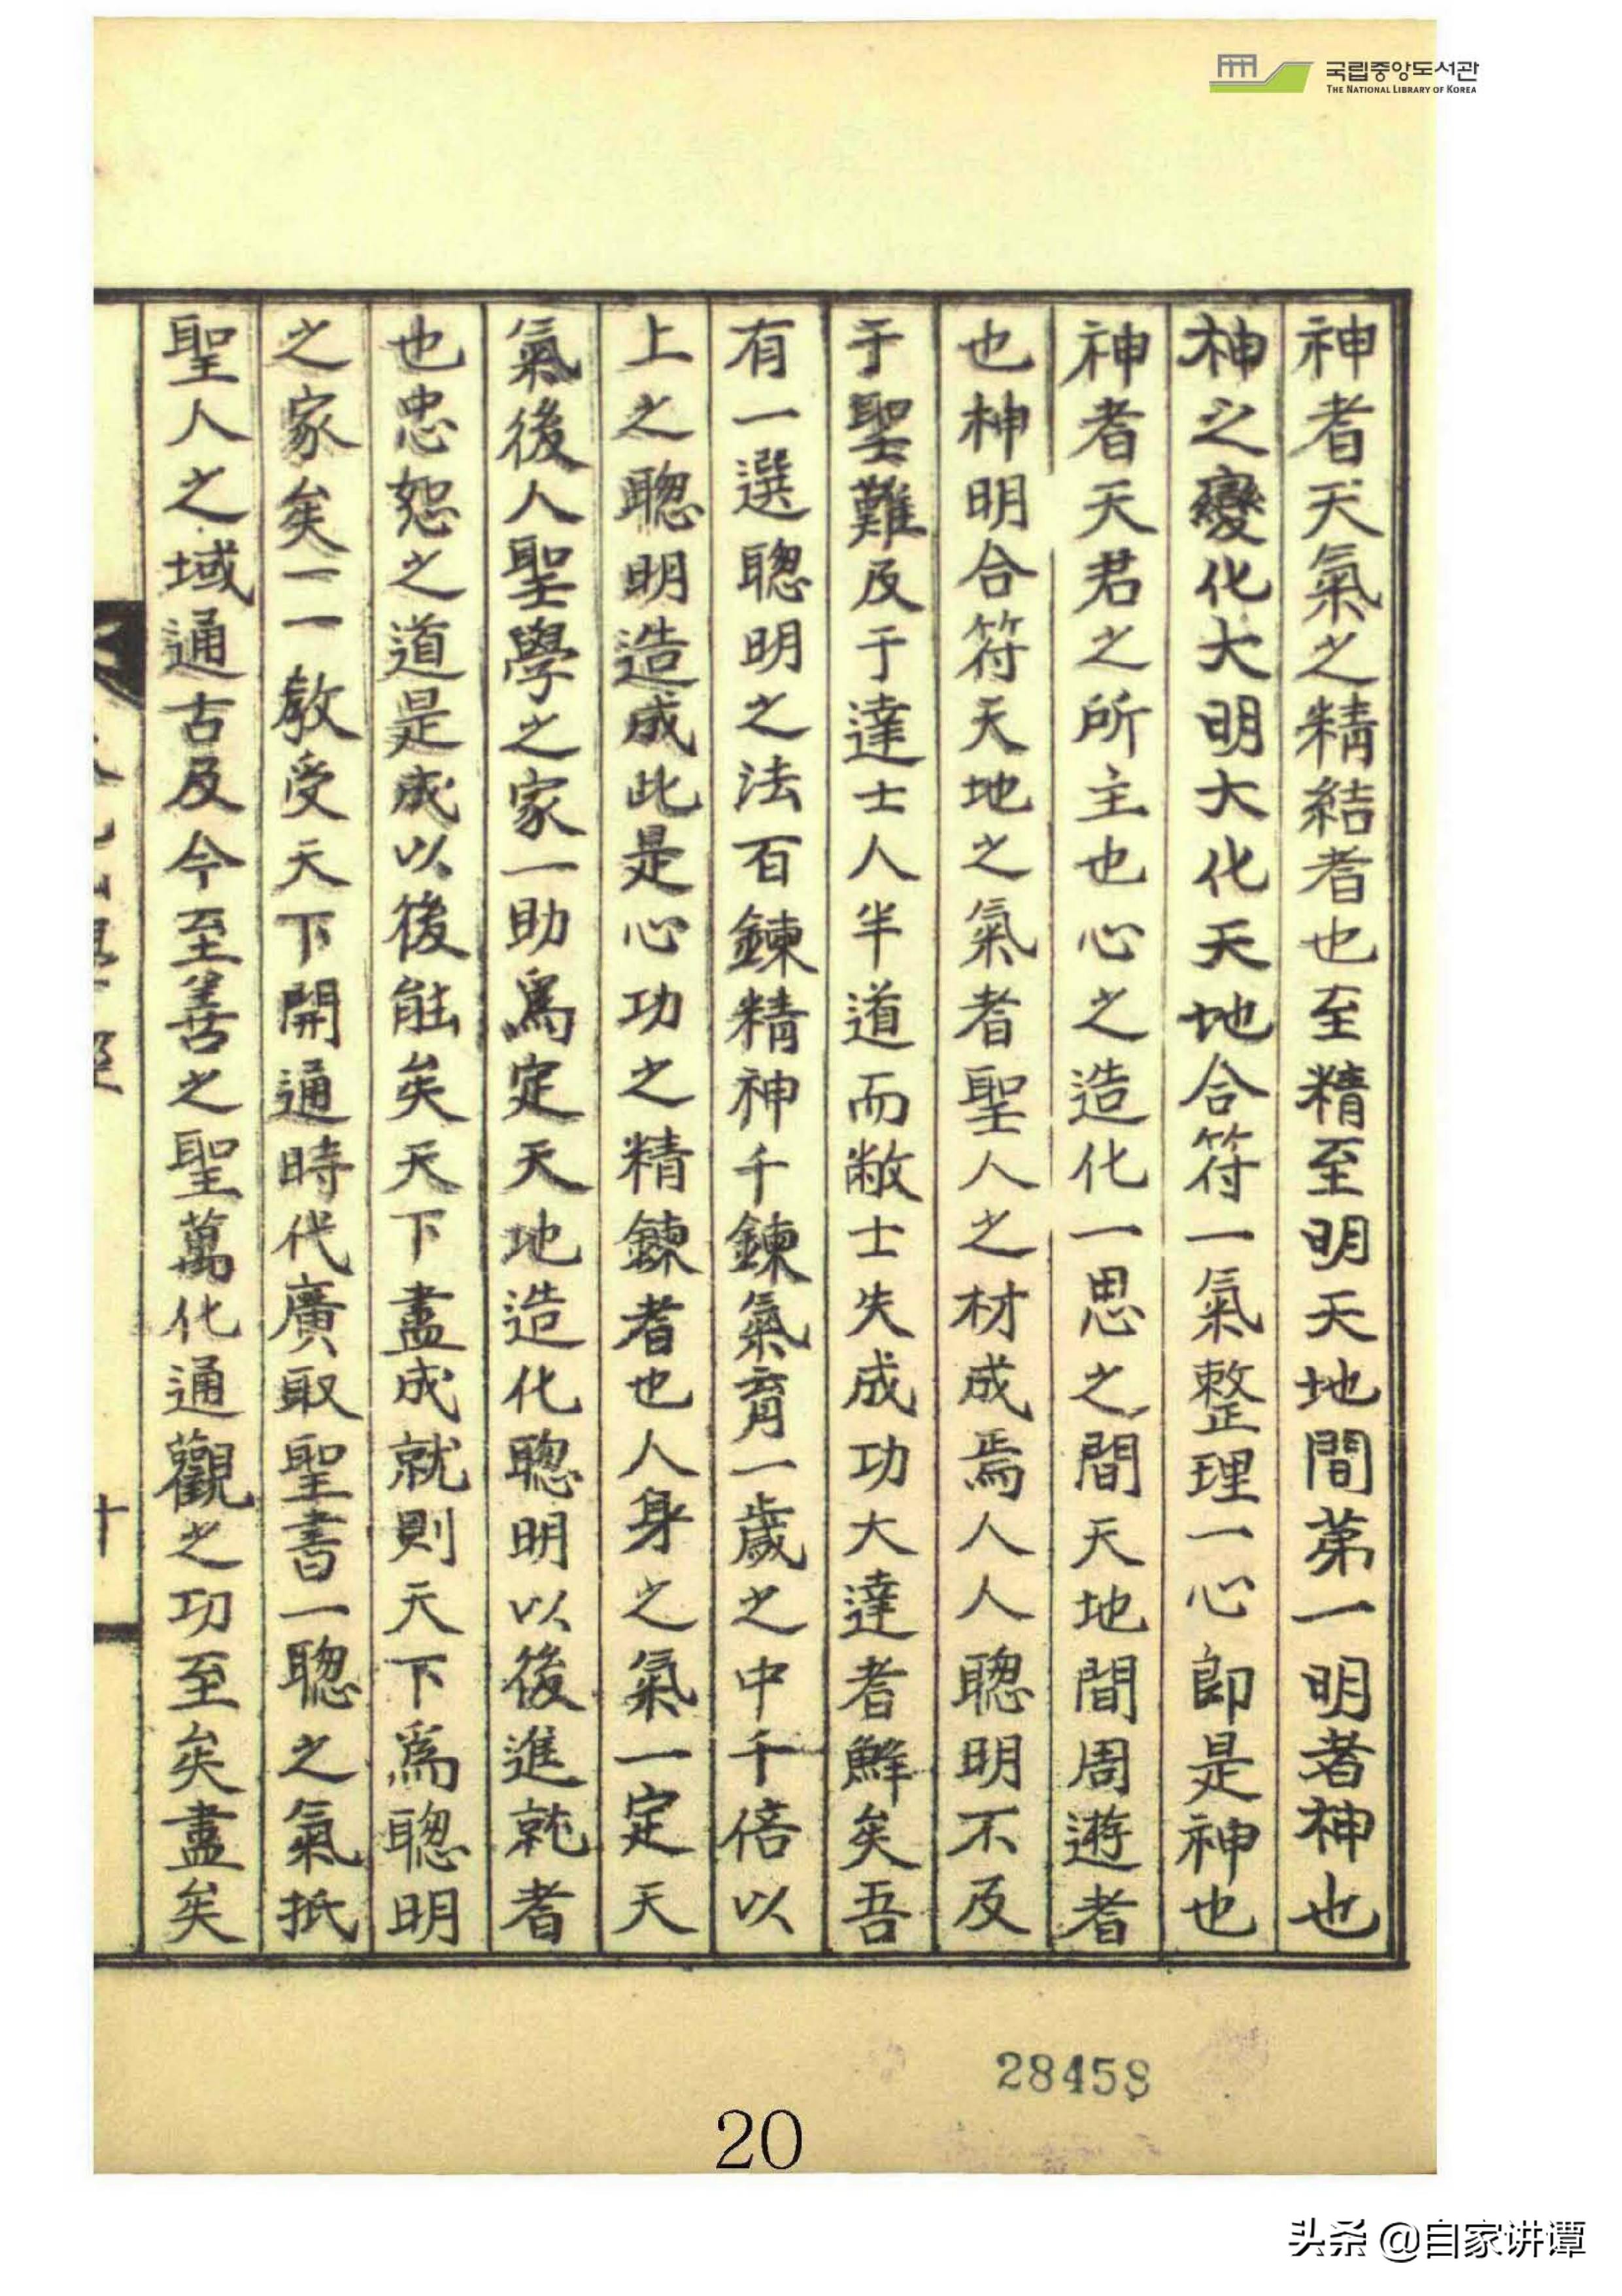 국립중앙도서관
THE NATIONAL LIBRARY OF KOREA
神者天氣之精結者也至精至明天地間苐一明者神也
神之變化大明大化天地合符一氣整理一心卽是神也
神者天君之所主也心之造化一思之間天地間周遊者
也神明合符天地之氣者聖人之材成焉人人聰明不及
于聖難及于達士人半道而敝士失成功大達者鮮矣吾
有一選聰明之法百鍊精神千鍊氣育一歲之中千倍以
上之聰明造成此是心功之精鍊者也人身之氣一定天
氣後人聖學之家一助爲定天地造化聰明以後進就者
也忠恕之道是成以後能矣天下盡成就則天下爲聰明
之家矣一一敎受天下開通時代廣取聖書一聰之氣抵
聖人之域通古及今至善之聖萬化通觀之功至矣盡矣
十
28458
20
头条 @自家讲谭